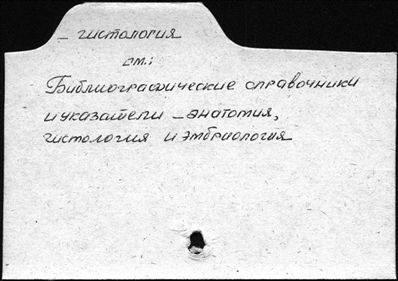 — гистология
см.:
Библиографические справочники
и указатели — анатомия,
гистология и эмбриология